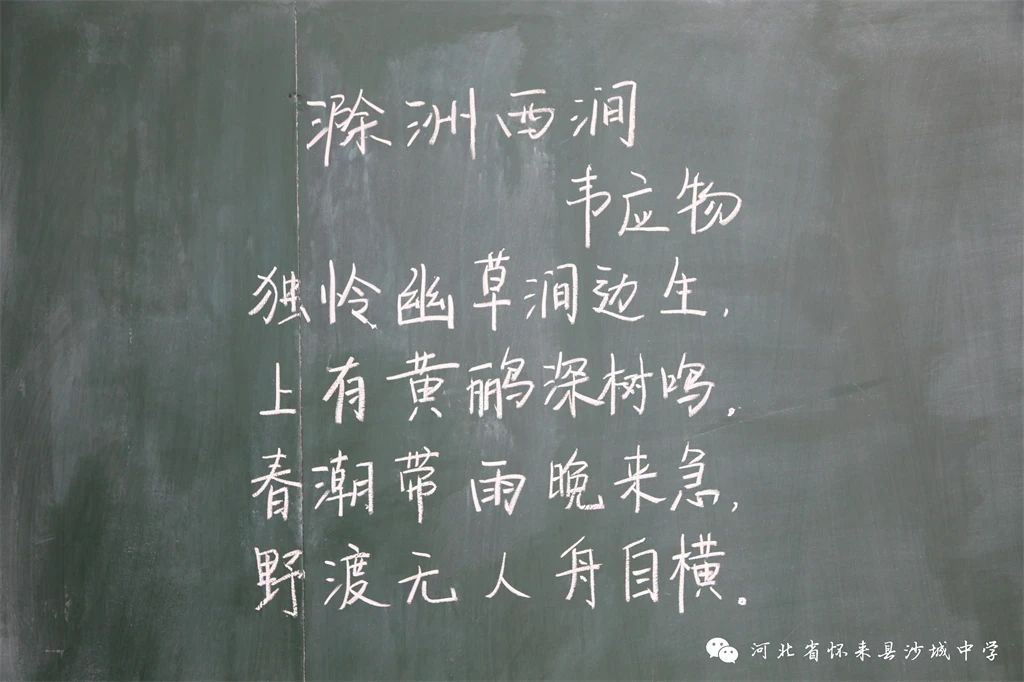 滁洲西涧
韦应物
独怜幽草涧边生,
上有黄鹂深树鸣.
春潮带雨晚来急,
野渡无人舟自横.
河北省怀来县沙城中学